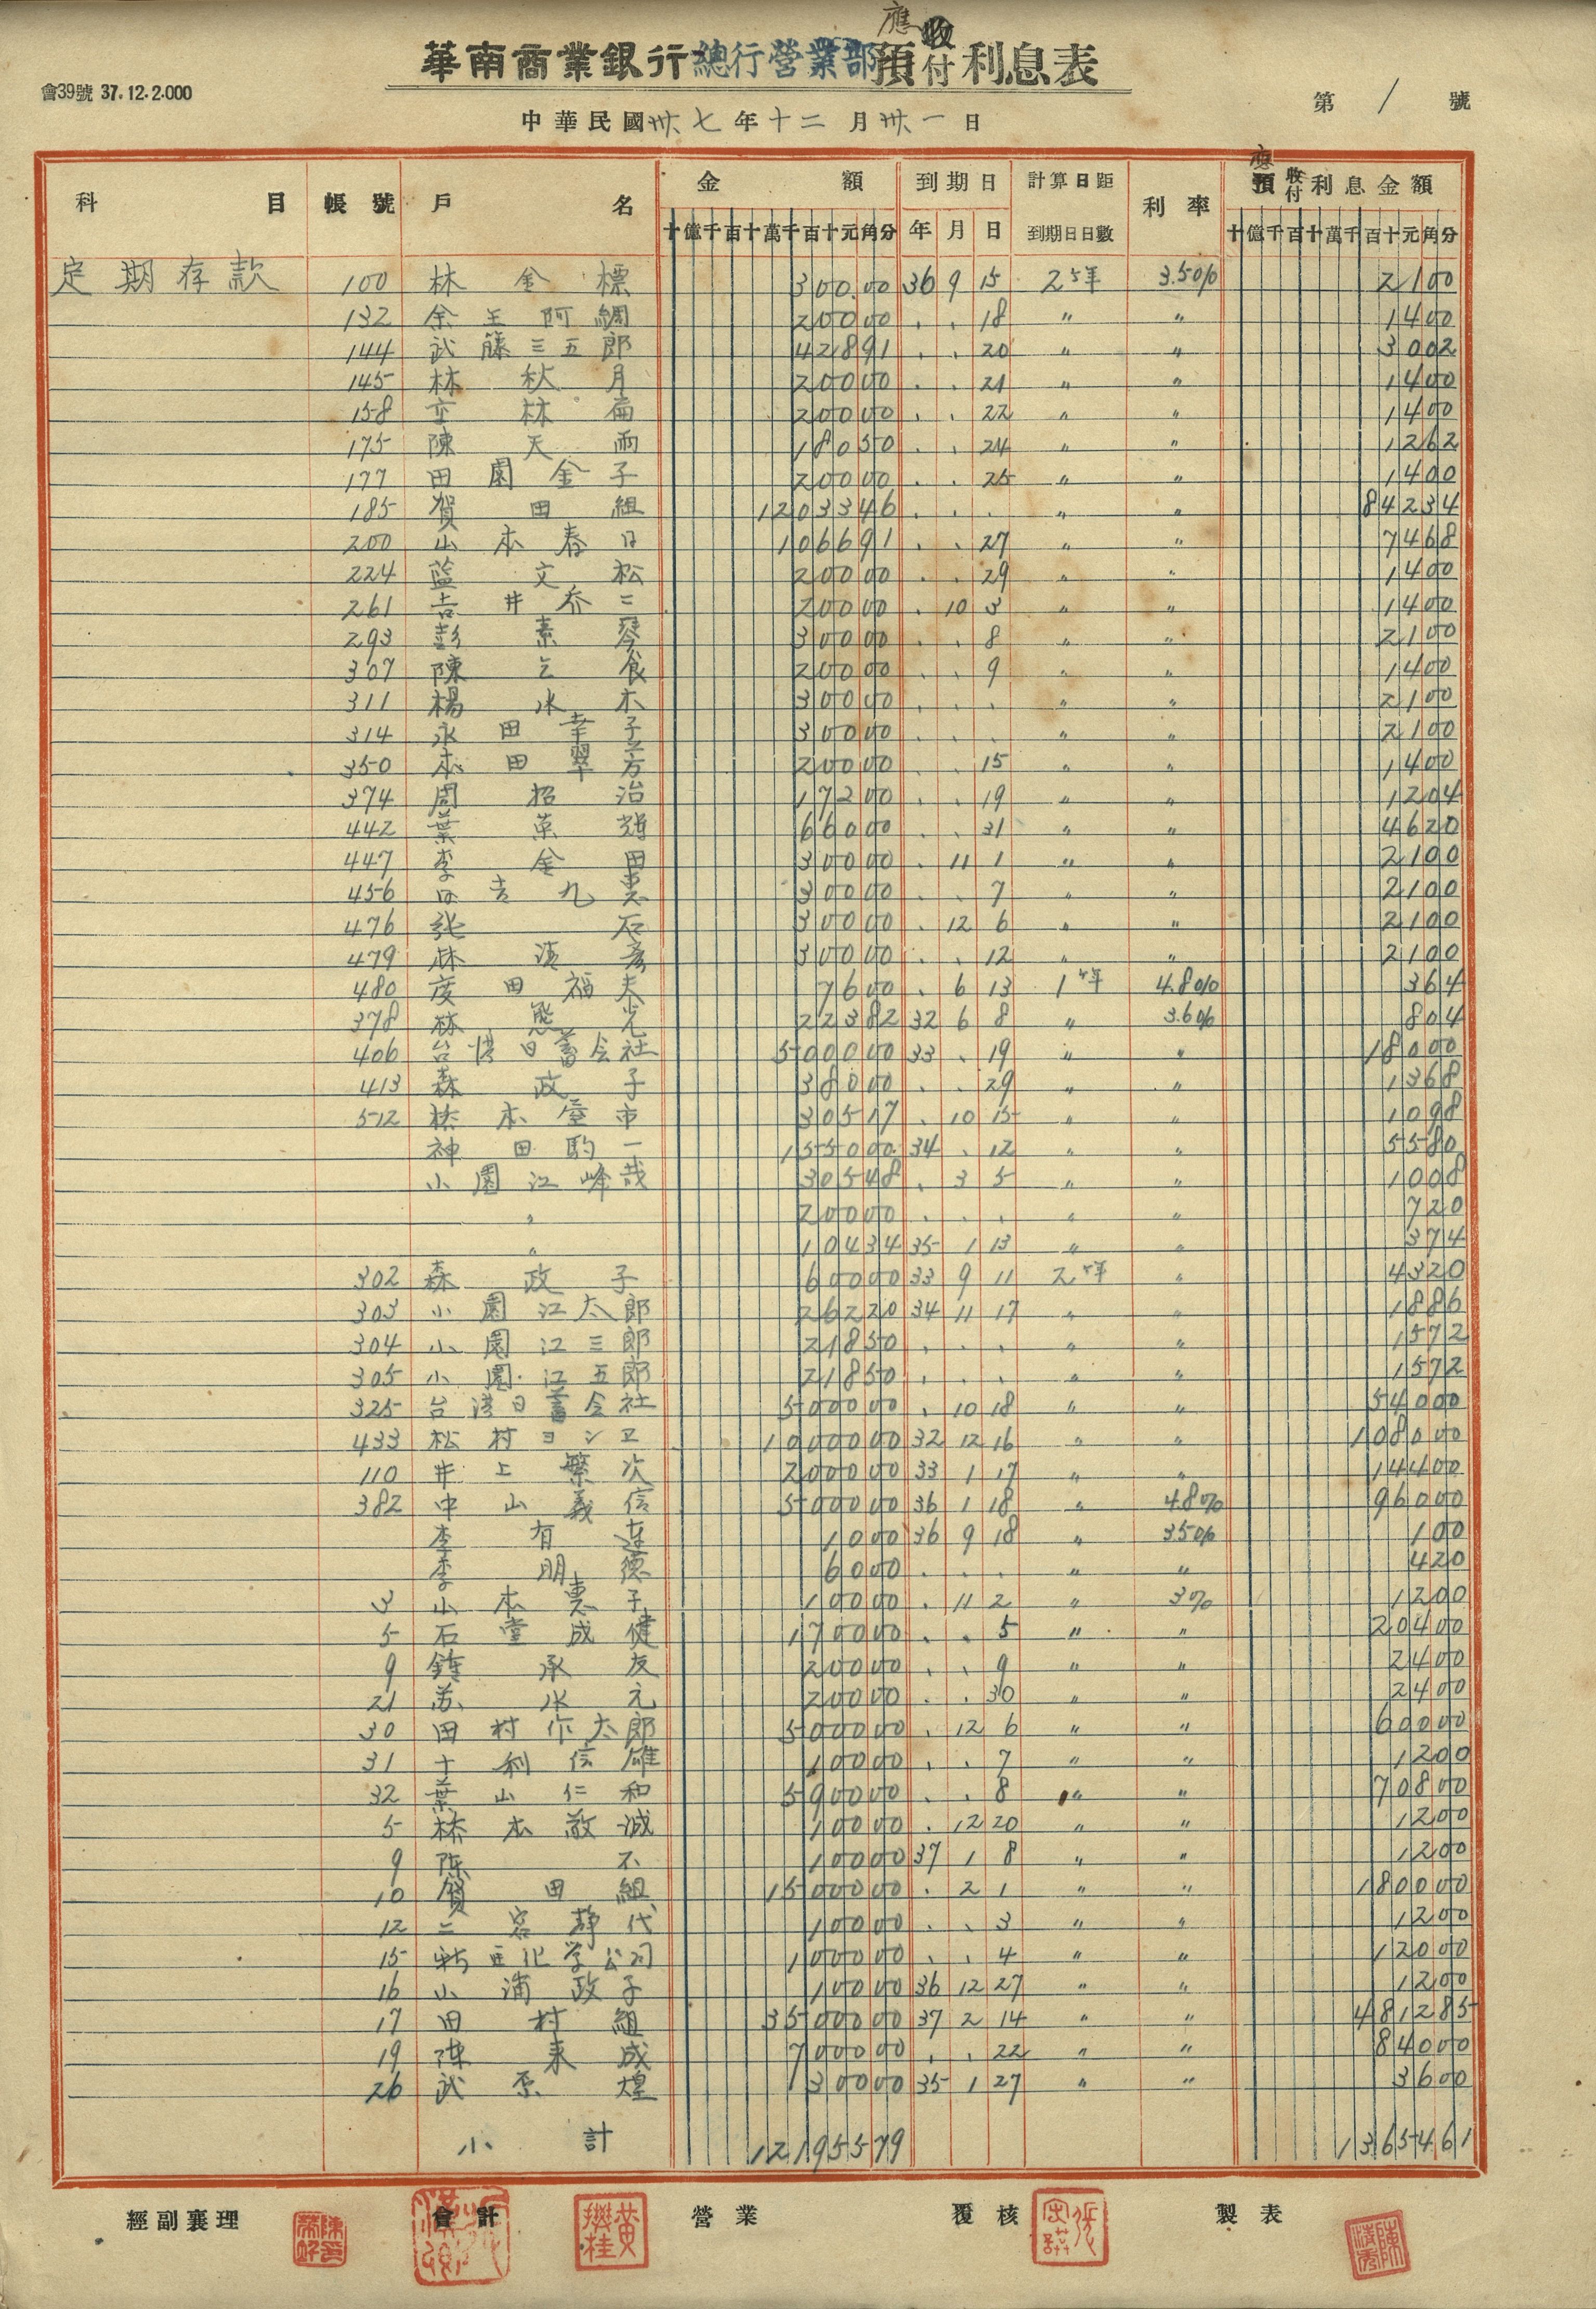 應收
華南商業銀行總行營業部預付利息表
會39號 37.12.2.000
第 1 號
中華民國卅七年十二月卅一日
科目 帳號 戶名 金額 到期日 計算日距到期日日數 利率 應預收付利息金額
十億千百十萬千百十元角分 年 月 日 十億千百十萬千百十元角分
定期存款 100 林金標 300.00 36 9 15 2ヶ年 3.50% 2100
132 余王阿綢 20000 . . 18 〃 〃 1400
144 武藤三五郎 42891 . . 20 〃 〃 3002
145 林秋月 20000 . . 21 〃 〃 1400
158 林 20000 . . 22 〃 〃 1400
175 陳天雨 18050 . . 24 〃 〃 1262
177 田園金子 20000 . . 25 〃 〃 1400
185 賀田組 1203346 . . . 〃 〃 84234
200 山本春日 106691 . . 27 〃 〃 7468
224 藍文松 20000 . . 29 〃 〃 1400
261 吉井 二 20000 . 10 3 〃 〃 1400
293 彭素琴 30000 . . 8 〃 〃 2100
307 陳乞食 20000 . . 9 〃 〃 1400
311 楊水木 30000 . . . 〃 〃 2100
314 永田幸子 30000 . . . 〃 〃 2100
350 本田翠芳 20000 . . 15 〃 〃 1400
374 周招治 17200 . . 19 〃 〃 1204
442 葉 66000 . . 31 〃 〃 4620
447 李金田 30000 . 11 1 〃 〃 2100
456 日吉九 30000 . . 7 〃 〃 2100
476 張石 30000 . 12 6 〃 〃 2100
479 林 彥 30000 . . 12 〃 〃 2100
480 廣田福夫 7600 . 6 13 1ヶ年 4.80% 364
378 林熊光 22382 32 6 8 〃 3.6% 804
406 台湾日蓄会社 500000 33 . 19 〃 〃 18000
413 森政子 38000 . . 29 〃 〃 1368
512 林本屋市 30517 . 10 15 〃 〃 1098
神田駒一 155000 34 . 12 〃 〃 5580
小園江峰哉 30548 . 3 5 〃 〃 1008
〃 20000 . . . 〃 〃 720
〃 10434 35 1 13 〃 〃 374
302 森政子 60000 33 9 11 2ヶ年 〃 4320
303 小園江太郎 26220 34 11 17 〃 〃 1886
304 小園江三郎 21850 . . . 〃 〃 1572
305 小園江五郎 21850 . . . 〃 〃 1572
325 台湾日蓄会社 500000 . 10 18 〃 〃 54000
433 松村ヨシヱ 1000000 32 12 16 〃 〃 108000
110 井上繁次 200000 33 1 17 〃 〃 14400
382 中山義信 500000 36 1 18 〃 4.8% 96000
李有連 1000 36 9 18 〃 350% 100
李明德 6000 . . . 〃 〃 420
3 山本惠子 10000 . 11 2 〃 3% 1200
5 石堂成健 170000 . . 5 〃 〃 20400
9 鍾承友 20000 . . 9 〃 〃 2400
21 苏水元 20000 . . 30 〃 〃 2400
30 田村作太郎 500000 . 12 6 〃 〃 60000
31 十利信雄 10000 . . 7 〃 〃 1200
32 葉山仁和 590000 . . 8 〃 〃 70800
5 林本敬誠 10000 . 12 20 〃 〃 1200
9 陈不 10000 37 1 8 〃 〃 1200
10 賀田組 1500000 . 2 1 〃 〃 180000
12 二宮静代 10000 . . 3 〃 〃 1200
15 新亞化学公司 100000 . . 4 〃 〃 12000
16 小浦政子 10000 36 12 27 〃 〃 1200
17 田村組 3500000 37 2 14 〃 〃 481285
19 陳来成 700000 . . 22 〃 〃 84000
26 武 煌 30000 35 1 27 〃 〃 3600
小計 12195579 1365461
經副襄理 會計 黃樹桂 營業 覆核 製表